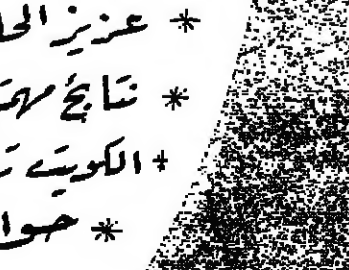 * عزيز الحا
* نتائج مهمة
+ الكويت تـ
* حوا